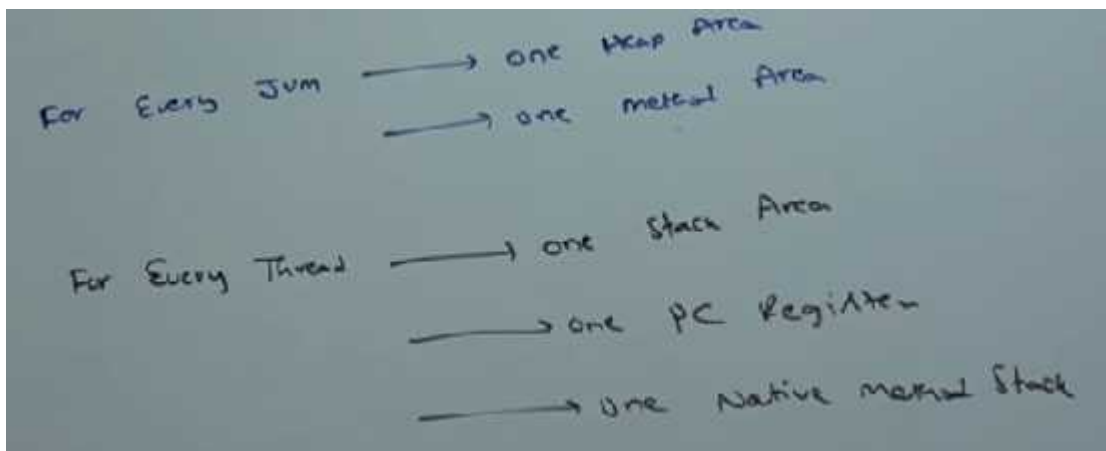 For Every JVM → one Heap Area
→ one method Area
For Every Thread → one Stack Area
→ one PC Register
→ one Native Method Stack